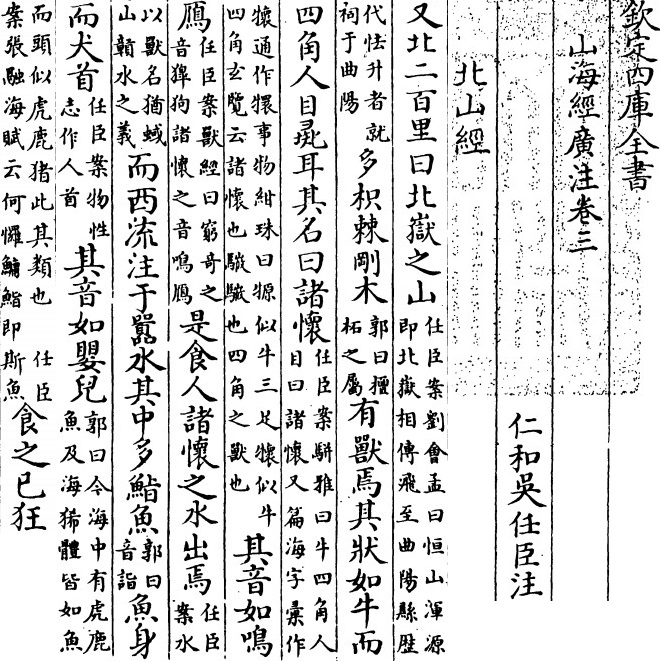 欽定四庫全書
山海經廣注卷三
仁和吳任臣注
北山經
又北二百里曰北嶽之山任臣案劉會孟曰恒山渾源即北嶽相傳飛至曲陽縣歷
代怯升者就祠于曲陽多枳棘剛木郭曰檀柘之屬有獸焉其狀如牛而
四角人目彘耳其名曰諸懷任臣案駢雅曰牛四角人目曰諸懷又篇海字彙作
通作事物紺珠曰似牛三足似牛四角玄覽云諸懷也也四角之獸也其音如鳴
鴈任臣案獸經曰窮奇之音獋狗諸懷之音鳴鴈是食人諸懷之水出焉任臣案水
以獸名猶蜮山贛水之義而西流注于囂水其中多鮨魚郭曰音詣魚身
而犬首任臣案物性志作人首其音如嬰兒郭曰今海中有虎鹿魚及海狶體皆如魚
而頭似虎鹿猪此其類也 任臣案張融海賦云何鱅鮨即斯魚食之已狂